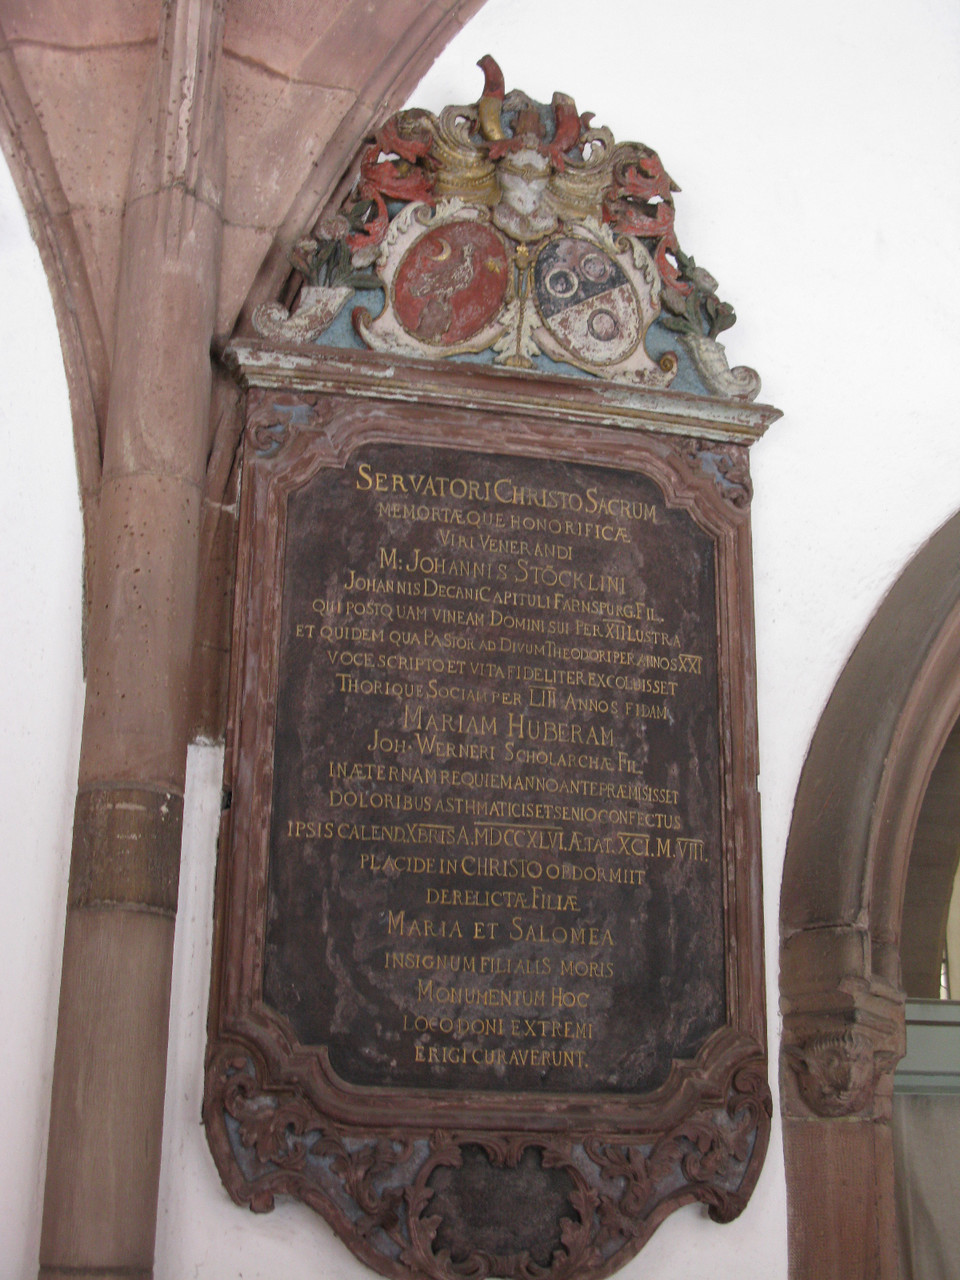 SERVATORI CHRISTO SACRUM
MEMORTÆQUE HONORIFICÆ
VIRI VENERANDI
M. JOHANNIS STÖCKLINI
JOHANNIS DECANI CAPITULI FARNSPURG. FIL.
QUI POSTQUAM VINEAM DOMINI SUI PER XIII LUSTRA
ET QUIDEM QUA PASTOR AD DIVUM THEODORI PER ANNOS XXI
VOCE SCRIPTO ET VITA FIDELITER EXCOLUISSET
THORIQUE SOCIAM PER LIII ANNOS FIDAM
MARIAM HUBERAM
JOH. WERNERI SCHOLARCHÆ FIL.
IN ÆTERNAM REQUIEM ANNO ANTE PRÆMISISSET
DOLORIBUS ASTHMATICIS ET SENIO CONFECTUS
IPSIS CALEND. XBRIS A. MDCCXLVI. ÆTAT. XCI. M. VIII.
PLACIDE IN CHRISTO OBDORMIIT
DERELICTÆ FILIÆ
MARIA ET SALOMEA
IN SIGNUM FILIALIS MORIS
MONUMENTUM HOC
LOCO DONI EXTREMI
ERIGI CURAVERUNT.